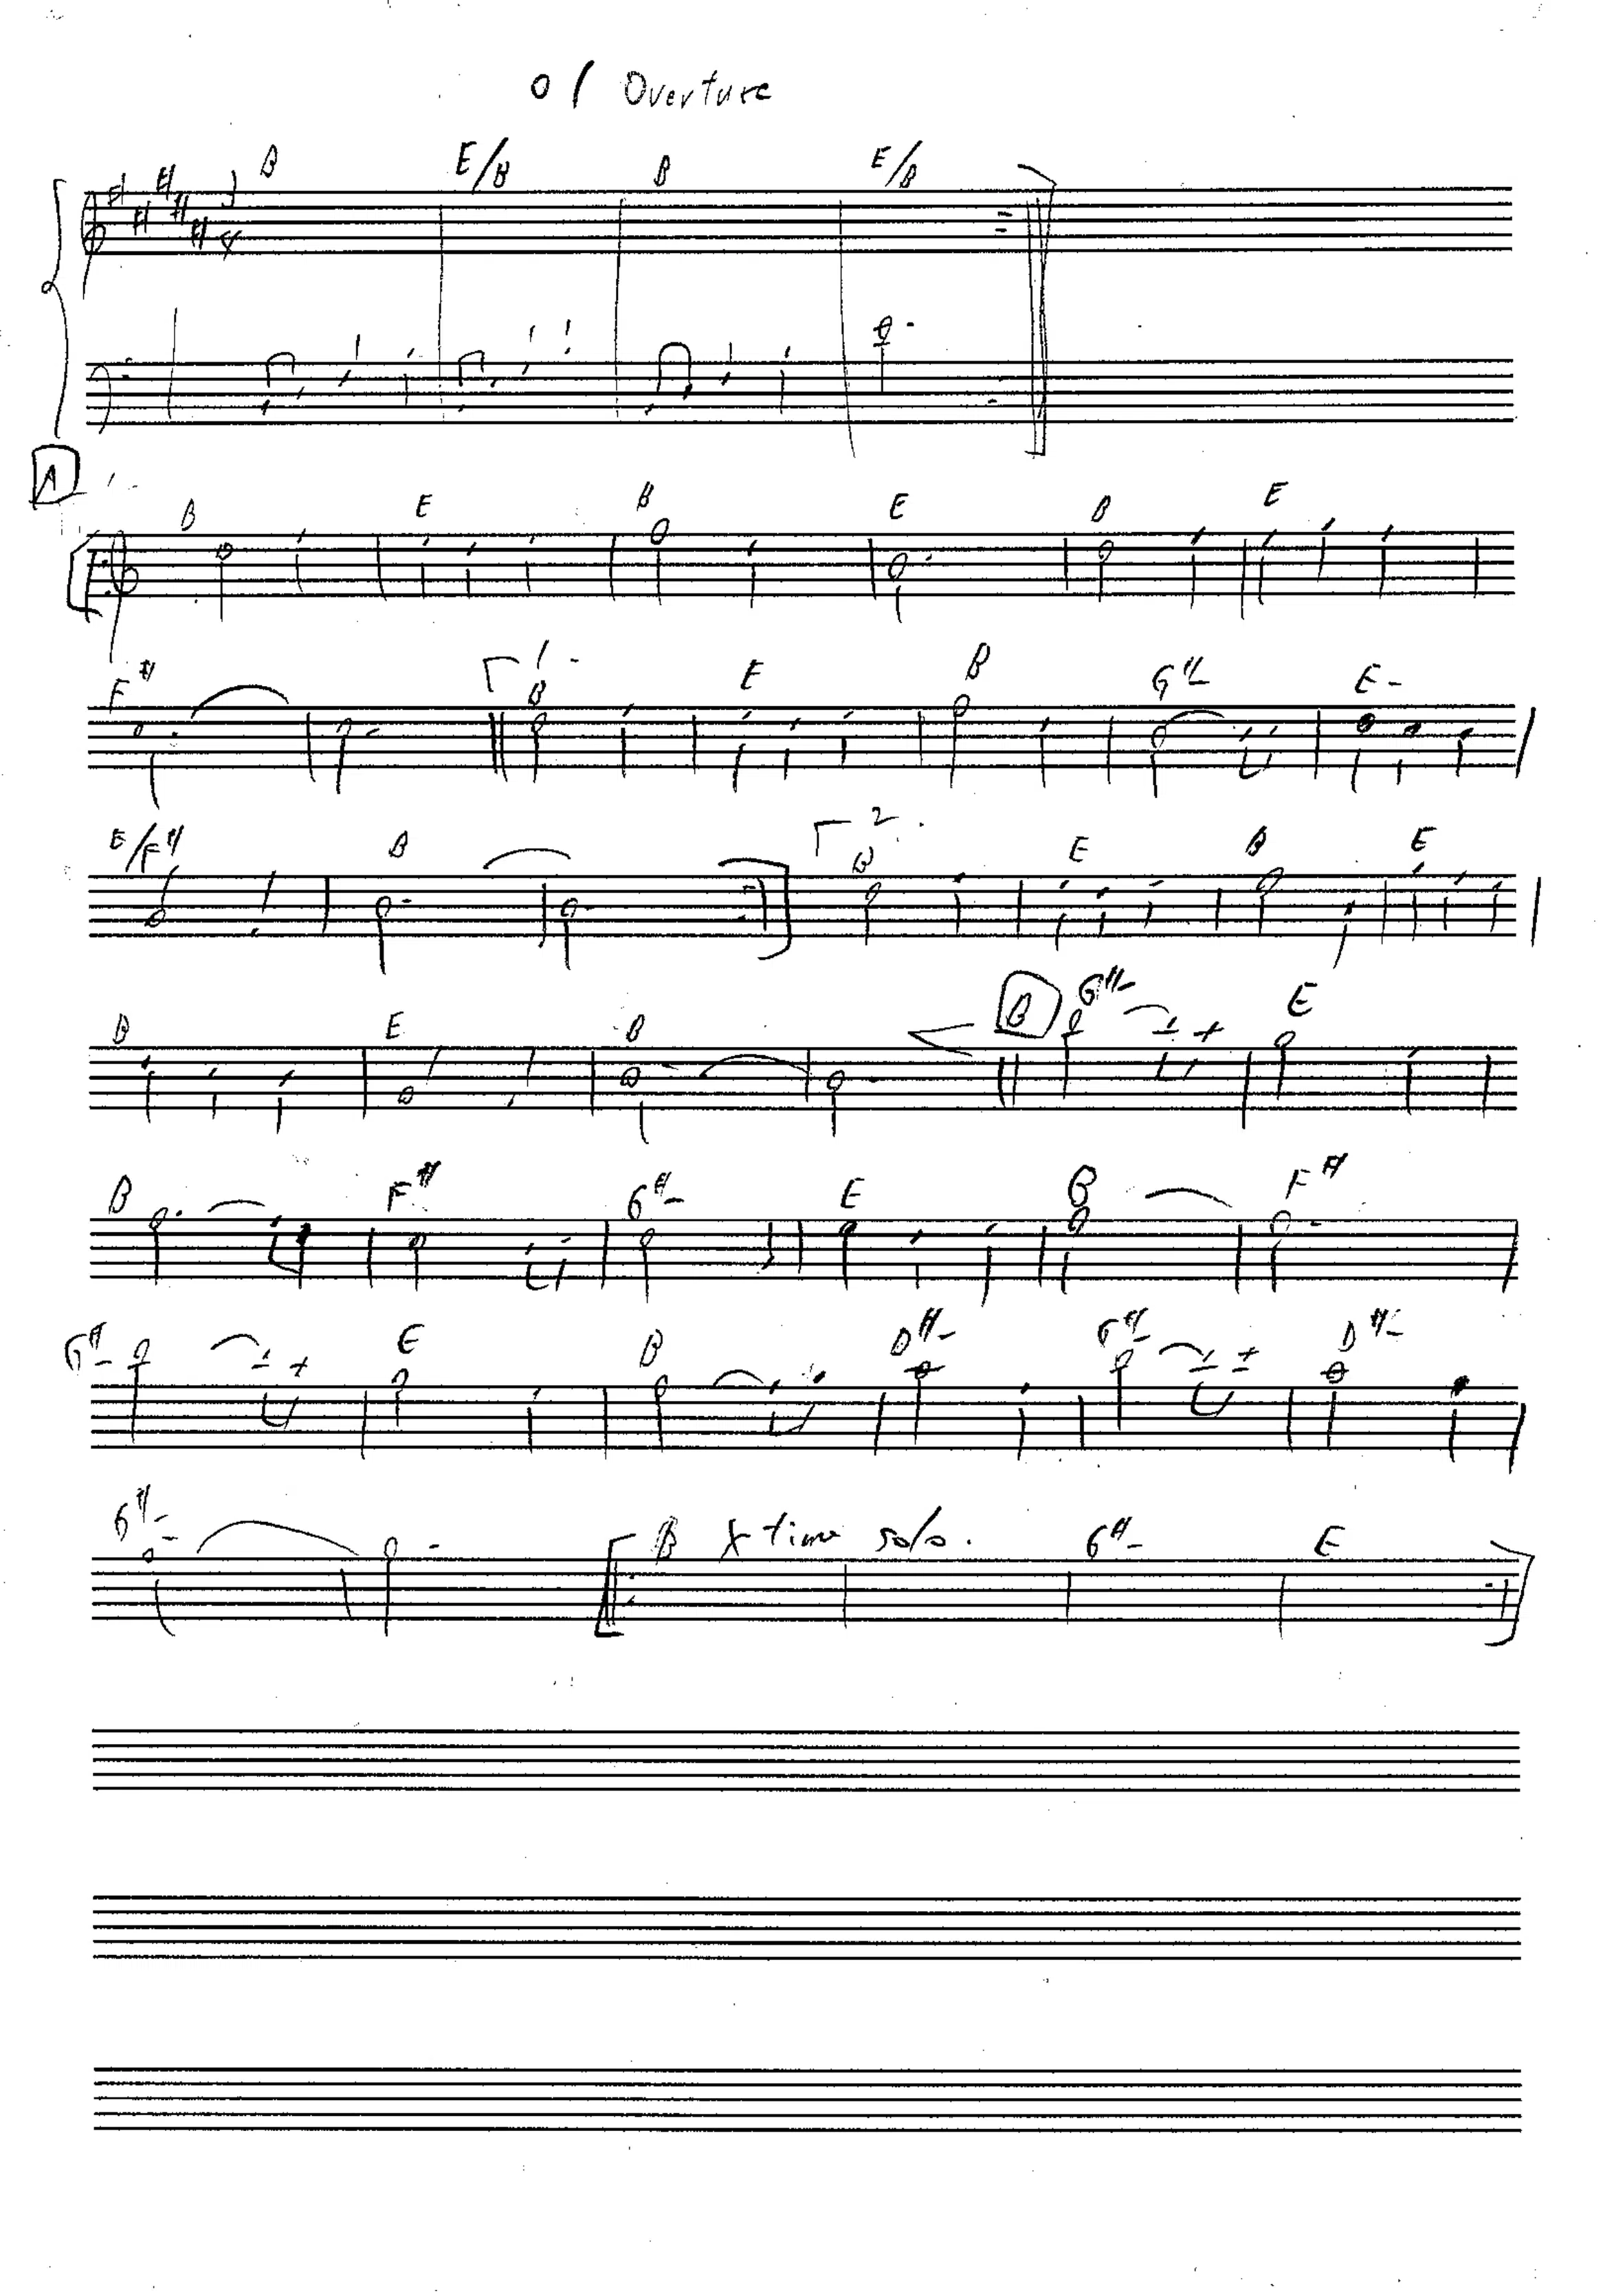 01 Overture
B E/B B E/B
3
4
A
B E B E B E
F# 1. B E B G#- E-
E/F# B 2. B E B E
B E B B G#- E
B F# G#- E B F#
G#- E B D#- G#- D#-
G#- B X time solo. G#- E